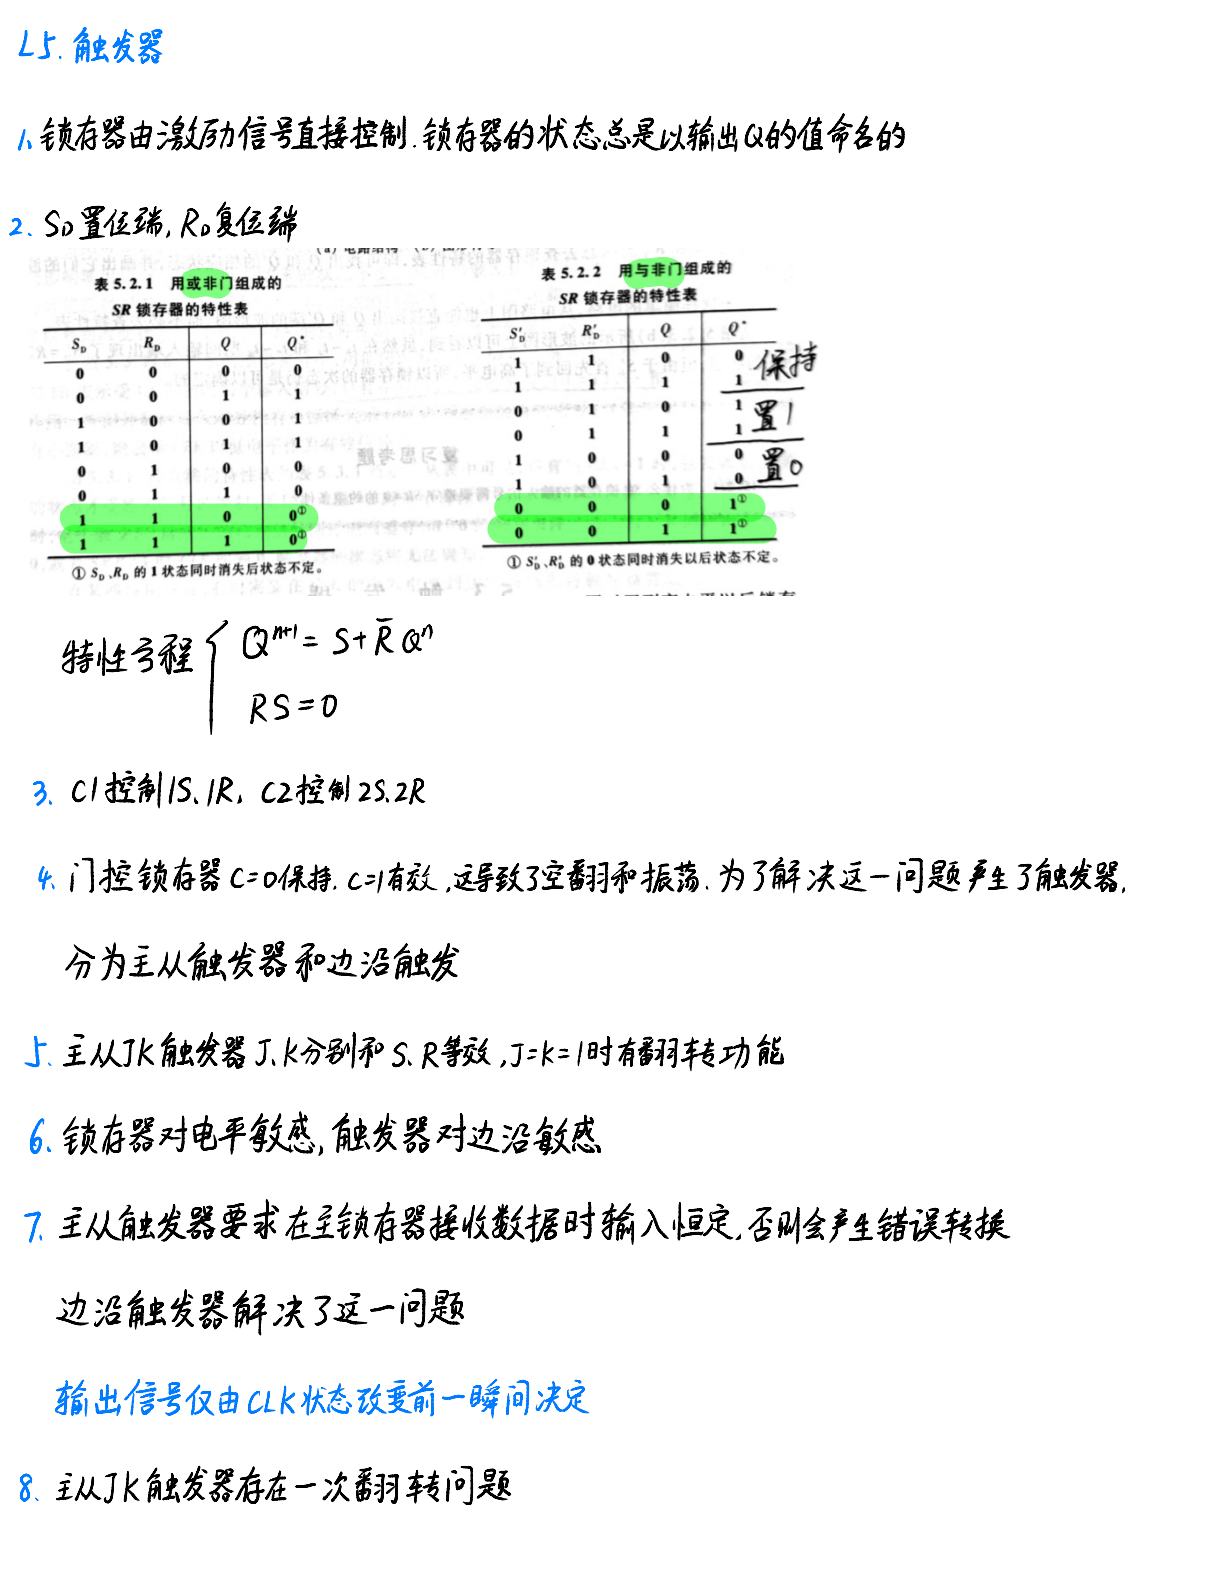 L5. 触发器
1、锁存器由激励信号直接控制.锁存器的状态总是以输出Q的值命名的
2. SD置位端,RD复位端
表 5.2.1 用或非门组成的
SR 锁存器的特性表
SD RD Q Q*
0 0 0 0
0 0 1 1
1 0 0 1
1 0 1 1
0 1 0 0
0 1 1 0
1 1 0 0①
1 1 1 0①
① SD、RD 的 1 状态同时消失后状态不定。
表 5.2.2 用与非门组成的
SR 锁存器的特性表
S'D R'D Q Q*
1 1 0 0 保持
1 1 1 1
0 1 0 1 置1
0 1 1 1
1 0 0 0 置0
1 0 1 0
0 0 0 1①
0 0 1 1①
① S'D、R'D 的 0 状态同时消失以后状态不定。
特性方程 { Qⁿ⁺¹ = S+R̄Qⁿ
RS=0
3. C1控制1S、1R, C2控制2S、2R
4. 门控锁存器C=0保持. C=1有效,这导致了空翻和振荡.为了解决这一问题产生了触发器,
分为主从触发器和边沿触发
5. 主从JK触发器J、K分别和S、R等效,J=K=1时有翻转功能
6. 锁存器对电平敏感,触发器对边沿敏感
7. 主从触发器要求在主锁存器接收数据时输入恒定,否则会产生错误转换
边沿触发器解决了这一问题
输出信号仅由CLK状态改变前一瞬间决定
8. 主从JK触发器存在一次翻转问题